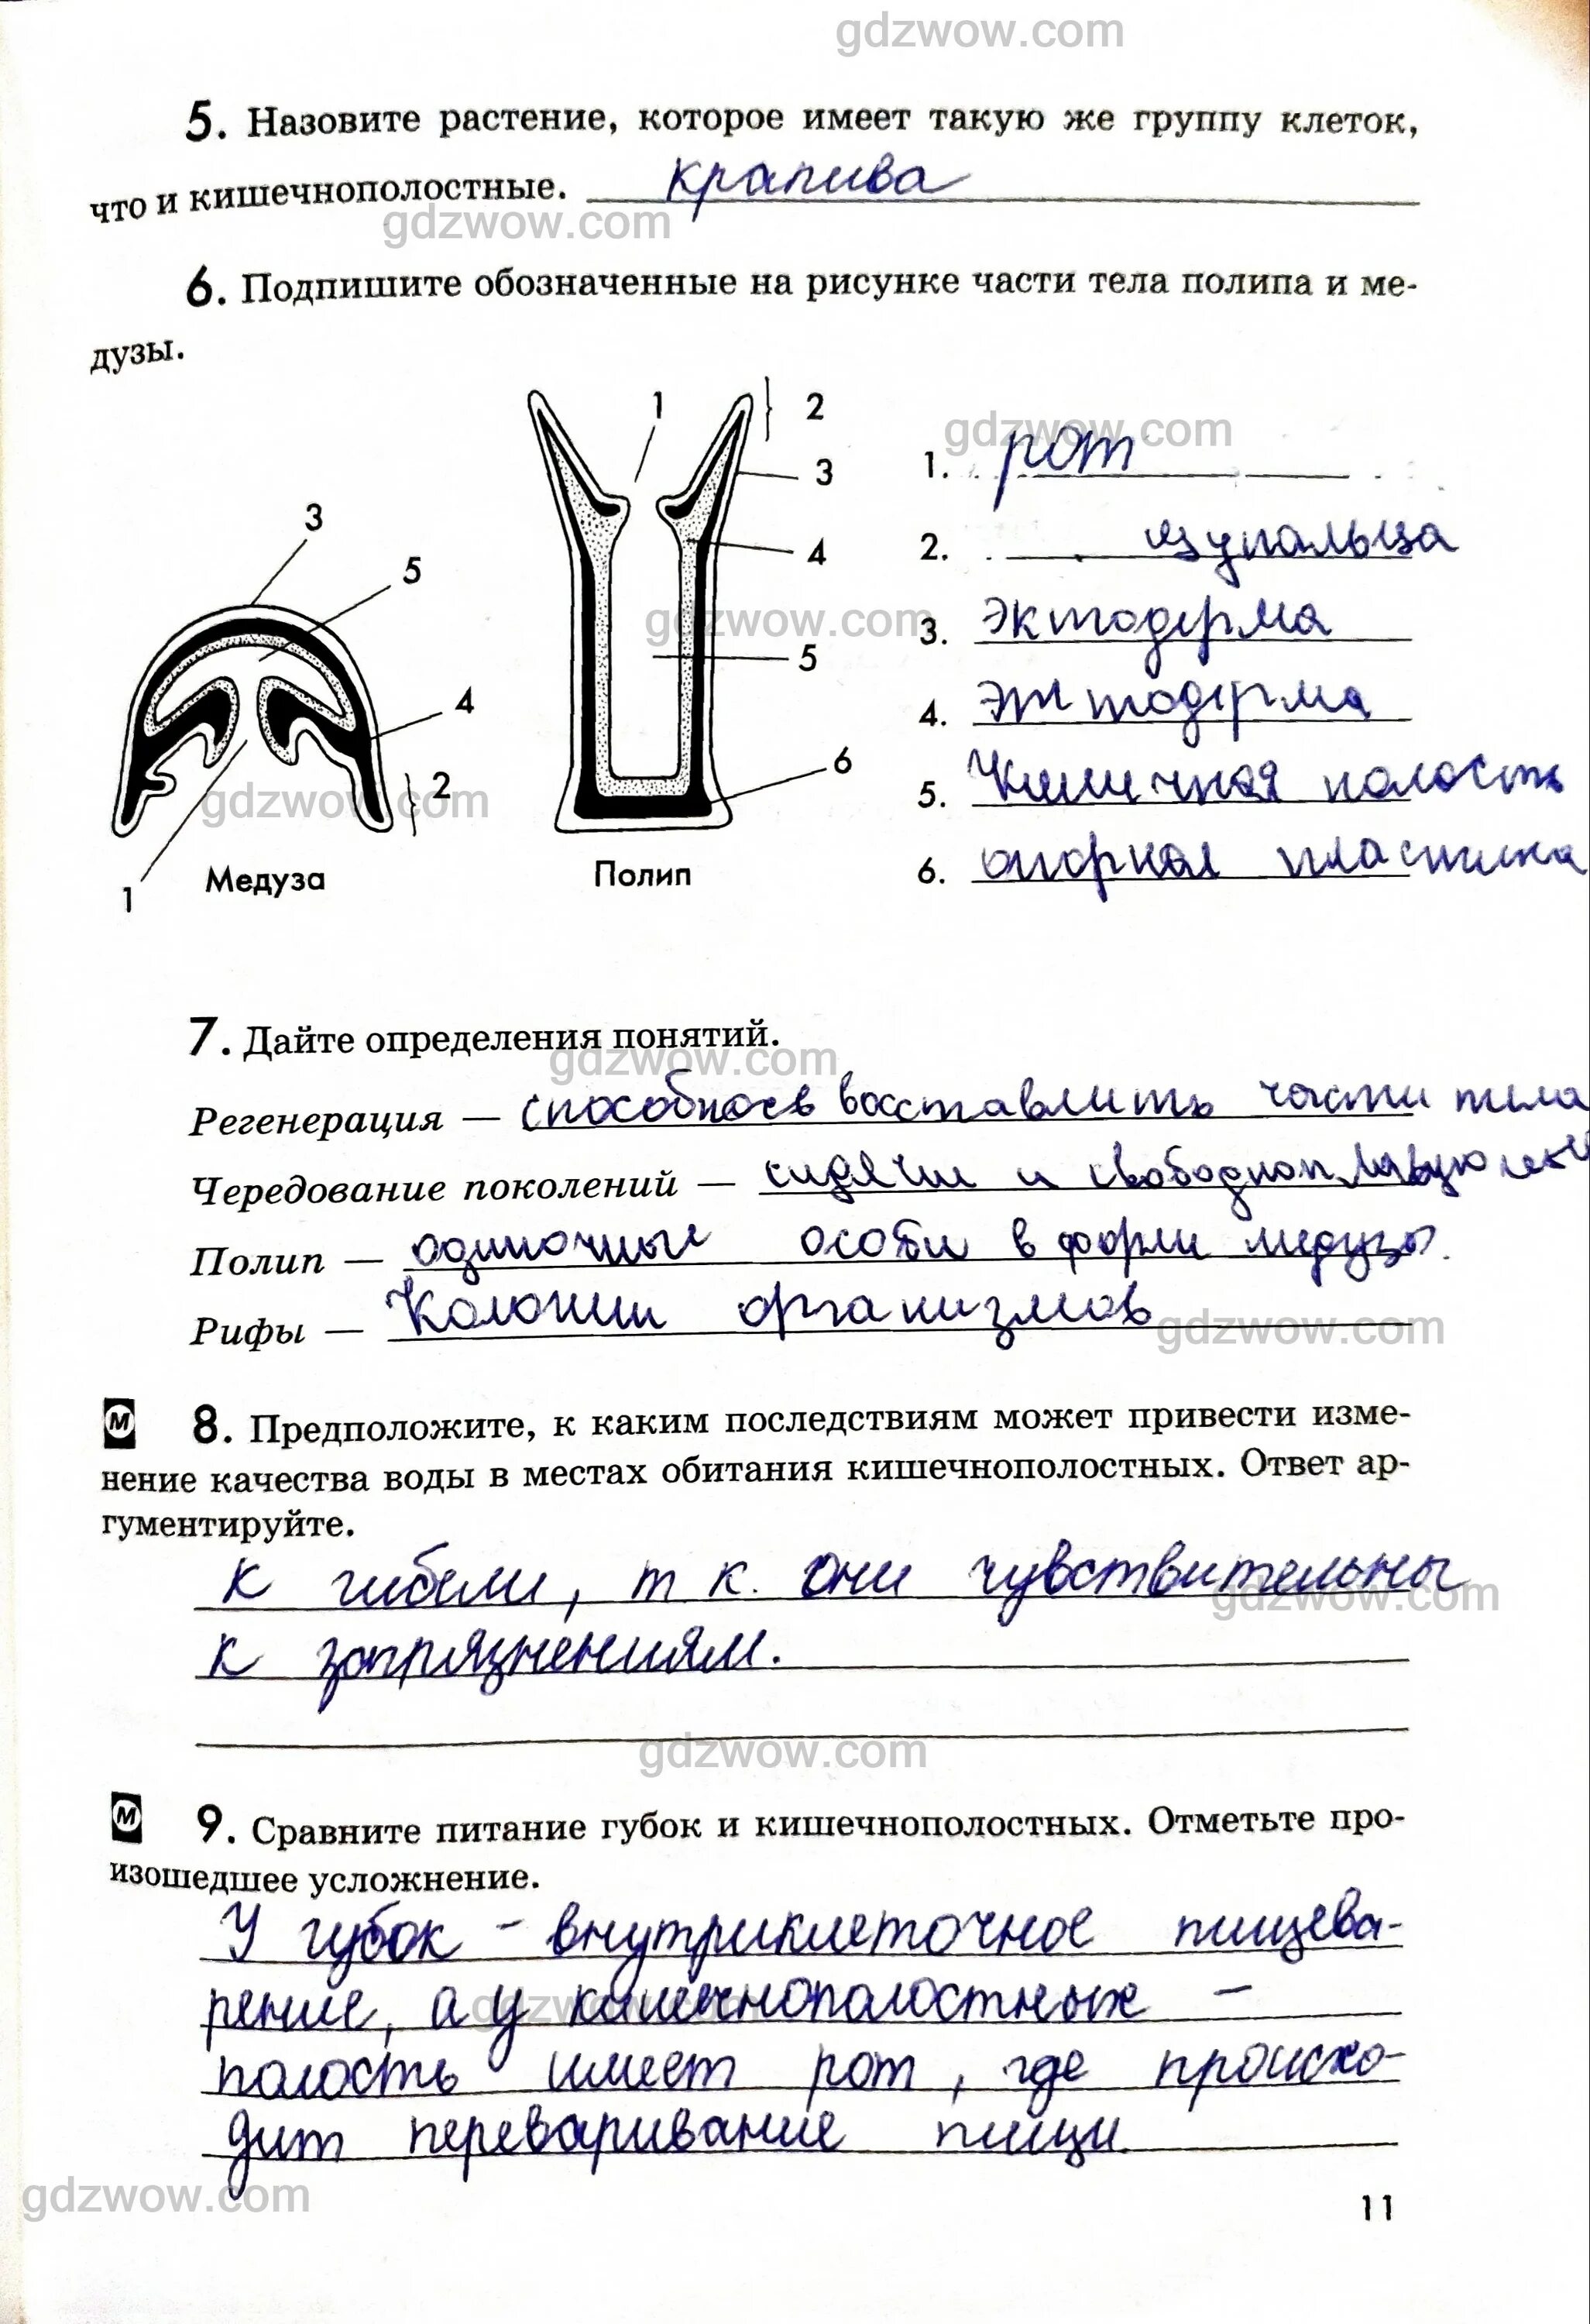 gdzwow.com
5. Назовите растение, которое имеет такую же группу клеток,
что и кишечнополостные. крапива
gdzwow.com
6. Подпишите обозначенные на рисунке части тела полипа и ме-
дузы.
1
2
3
4
5
6
3
5
4
2
1
Медуза
Полип
gdzwow.com
1. рот
2. щупальца
gdzwow.com
3. эктодерма
4. энтодерма
5. Кишечная полость
gdzwow.com
6. опорная пластинка
7. Дайте определения понятий.
gdzwow.com
Регенерация — способность восставлить части тела
Чередование поколений — сидячие и
Полип — одиночные особи в форме медузы.
Рифы — Колонии организмов
gdzwow.com
М 8. Предположите, к каким последствиям может привести изме-
нение качества воды в местах обитания кишечнополостных. Ответ ар-
гументируйте.
К гибели, т к. они чувствительны
gdzwow.com
к загрязнениям.
gdzwow.com
М 9. Сравните питание губок и кишечнополостных. Отметьте про-
изошедшее усложнение.
У губок - внутриклеточное пищева-
рение, а у кишечнополостных -
gdzwow.com
полость имеет рот, где происхо-
дит переваривание пищи.
gdzwow.com
11